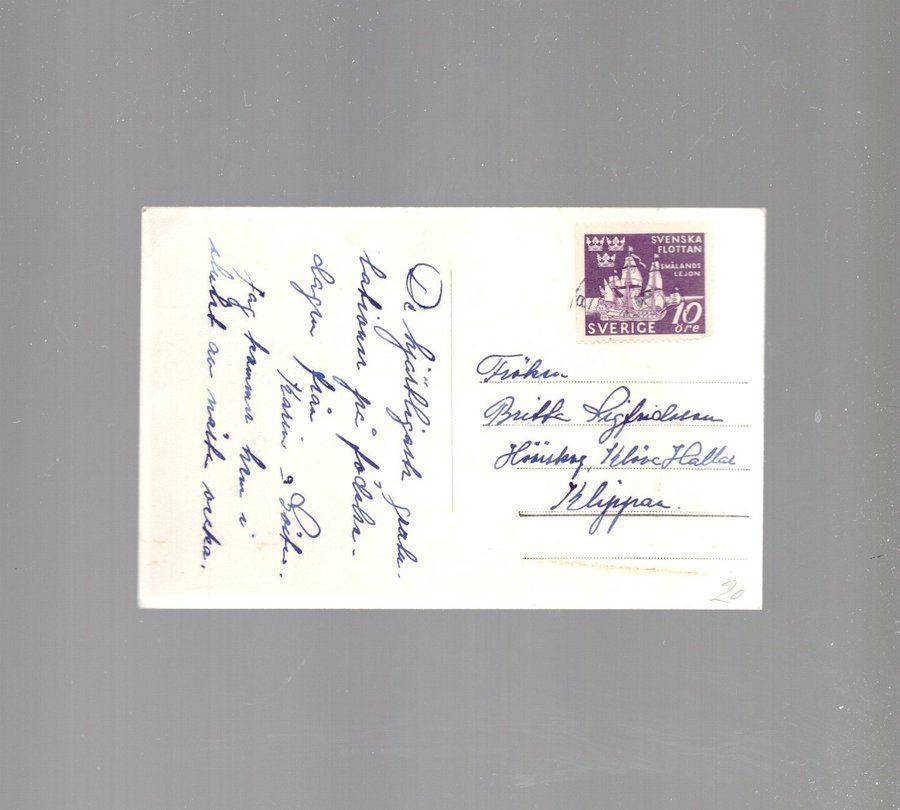 De hjärtligaste gratu-
lationer på födelse-
dagen från
Karin o
Jag kommer hem i
slutet av nästa vecka.
SVENSKA
FLOTTAN
SMÅLANDS
LEJON
SVERIGE
10
öre
Fröken
Britta Sigfridsson
Klöva Hallar
Klippan.
20